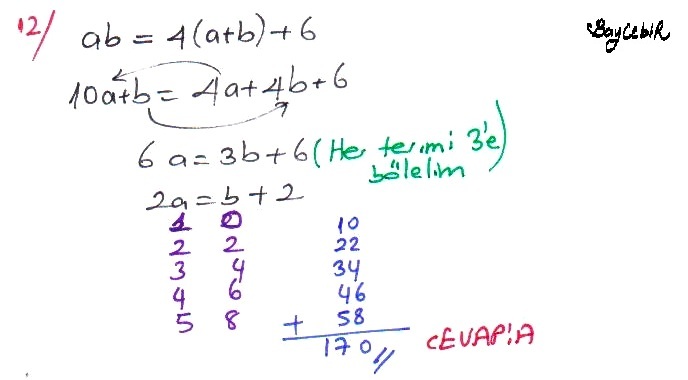 12/ ab = 4(a+b)+6
BayCebiR
10a+b = 4a+4b+6
6a=3b+6 (Her terimi 3'e bölelim)
2a=b+2
1 0 10
2 2 22
3 4 34
4 6 46
5 8 + 58
170 //
CEVAP:A